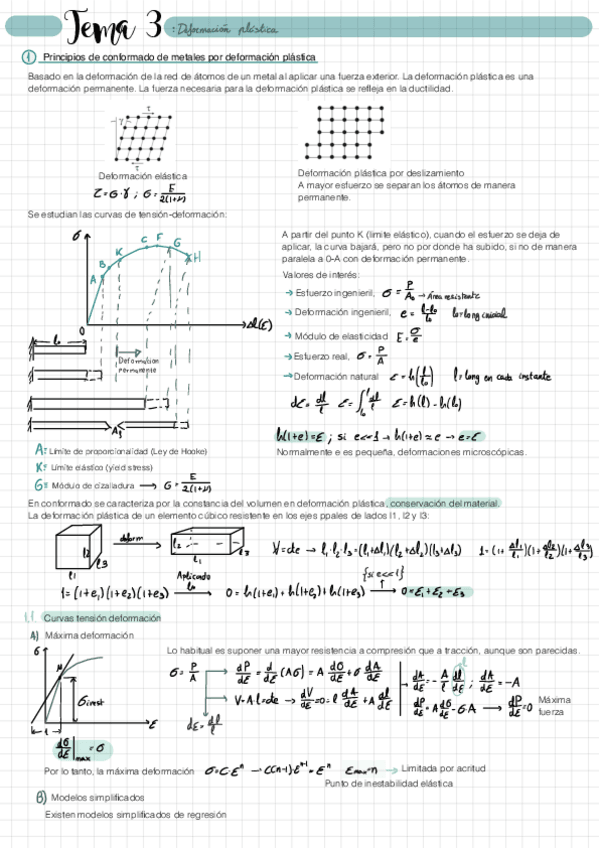 Tema 3 : Deformación plástica
1 Principios de conformado de metales por deformación plástica
Basado en la deformación de la red de átomos de un metal al aplicar una fuerza exterior. La deformación plástica es una
deformación permanente. La fuerza necesaria para la deformación plástica se refleja en la ductilidad.
τ
γ
τ
Deformación elástica
Deformación plástica por deslizamiento
A mayor esfuerzo se separan los átomos de manera
permanente.
τ = G·γ ; G = E/2(1+ν)
Se estudian las curvas de tensión-deformación:
σ
A B K C F G H
0
Δl(E)
l₀
Deformacion
permanente
A partir del punto K (limite elástico), cuando el esfuerzo se deja de
aplicar, la curva bajará, pero no por donde ha subido, si no de manera
paralela a 0-A con deformación permanente.
Valores de interés:
→ Esfuerzo ingenieril, σ = P/A₀ → Área resistente
→ Deformación ingenieril, e = l-l₀/l₀ l₀=long inicial
→ Módulo de elasticidad E = σ/e
→ Esfuerzo real, σ = P/A
→ Deformación natural ε = ln(l/l₀) l = long en cada instante
dε = dl/l ε = ∫ dl/l ε = ln(l) - ln(l₀)
ln(1+e) = ε ; si e<<1 → ln(1+e) ≈ e → e=ε
Normalmente e es pequeña, deformaciones microscópicas.
A: Límite de proporcionalidad (Ley de Hooke)
K: Límite elástico (yield stress)
G: Módulo de cizalladura → G = E/2(1+ν)
En conformado se caracteriza por la constancia del volumen en deformación plástica, conservación del material.
La deformación plástica de un elemento cúbico resistente en los ejes ppales de lados l1, l2 y l3:
l2 l3 l1
deform
l₂ l₃ l₁
V=cte → l₁·l₂·l₃=(l₁+Δl₁)(l₂+Δl₂)(l₃+Δl₃) 1=(1+Δl₁/l₁)(1+Δl₂/l₂)(1+Δl₃/l₃)
1=(1+e₁)(1+e₂)(1+e₃) Aplicado ln → 0 = ln(1+e₁)+ln(1+e₂)+ln(1+e₃) {si e<<1} → 0=ε₁+ε₂+ε₃
1.1. Curvas tensión deformación
A) Máxima deformación
Lo habitual es suponer una mayor resistencia a compresión que a tracción, aunque son parecidas.
σ
σinest
1
ε
dσ/dε |max = σ
σ = P/A
dP/dε = d/dε (Aσ) = A dσ/dε + σ dA/dε
V=A·l=cte → dV/dε=0= l dA/dε + A dl/dε
dε = dl/l
dA/dε = - A/l dl/dε ; dA/dε = -A
dP/dε = A dσ/dε - σA → dP/dε = 0
Máxima
fuerza
Por lo tanto, la máxima deformación σ=Cεⁿ → C(n-1)εⁿ⁻¹ = εⁿ εmax=n → Limitada por acritud
Punto de inestabilidad elástica
B) Modelos simplificados
Existen modelos simplificados de regresión